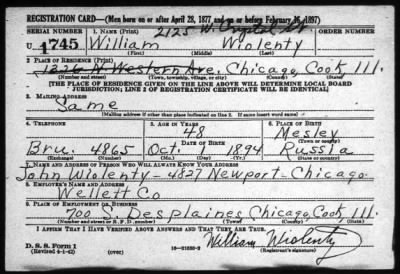 REGISTRATION CARD—(Men born on or after April 28, 1877 and on or before February 16, 1897)
SERIAL NUMBER 1. NAME (Print) 2125 W. Crystal St
U 1745 William Wiolenty
(First) (Middle) (Last)
2. PLACE OF RESIDENCE (Print)
1226 N Western Ave. Chicago, Cook Ill.
(Number and street) (Town, township, village, or city) (County) (State)
[THE PLACE OF RESIDENCE GIVEN ON THE LINE ABOVE WILL DETERMINE LOCAL BOARD
JURISDICTION; LINE 2 OF REGISTRATION CERTIFICATE WILL BE IDENTICAL]
3. MAILING ADDRESS
Same
[Mailing address if other than place indicated on line 2. If same insert word same]
4. TELEPHONE 5. AGE IN YEARS 6. PLACE OF BIRTH
48 Mesley
DATE OF BIRTH (Town or county)
Bru. 4865 Oct. 1 1894 Russia
(Exchange) (Number) (Mo.) (Day) (Yr.) (State or country)
7. NAME AND ADDRESS OF PERSON WHO WILL ALWAYS KNOW YOUR ADDRESS
John Wiolenty - 4827 Newport - Chicago
8. EMPLOYER'S NAME AND ADDRESS
Wellett Co
9. PLACE OF EMPLOYMENT OR BUSINESS
700 S. Desplaines Chicago, Cook Ill.
(Number and street or R. F. D. number) (Town) (County) (State)
I AFFIRM THAT I HAVE VERIFIED ABOVE ANSWERS AND THAT THEY ARE TRUE.
D. S. S. Form 1
(Revised 4-1-42) (over) 16—21630-2 William Wiolenty
(Registrant's signature)